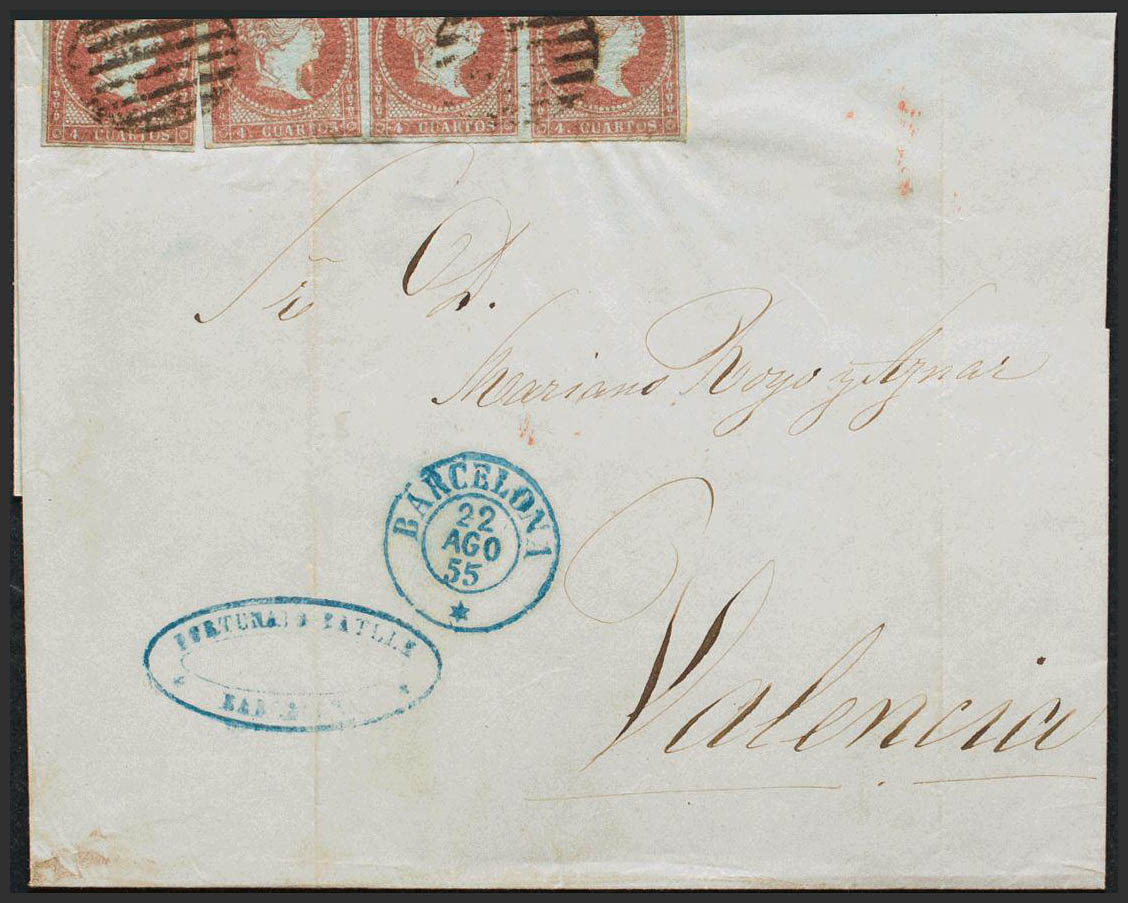 4 CUARTOS 4 CUARTOS 4 CUARTOS 4 CUARTOS
Sr. D.
Mariano Royo y Aznar
BARCELONA
22
AGO
55
FORTUNATO BATLLE
BARCELONA
Valencia